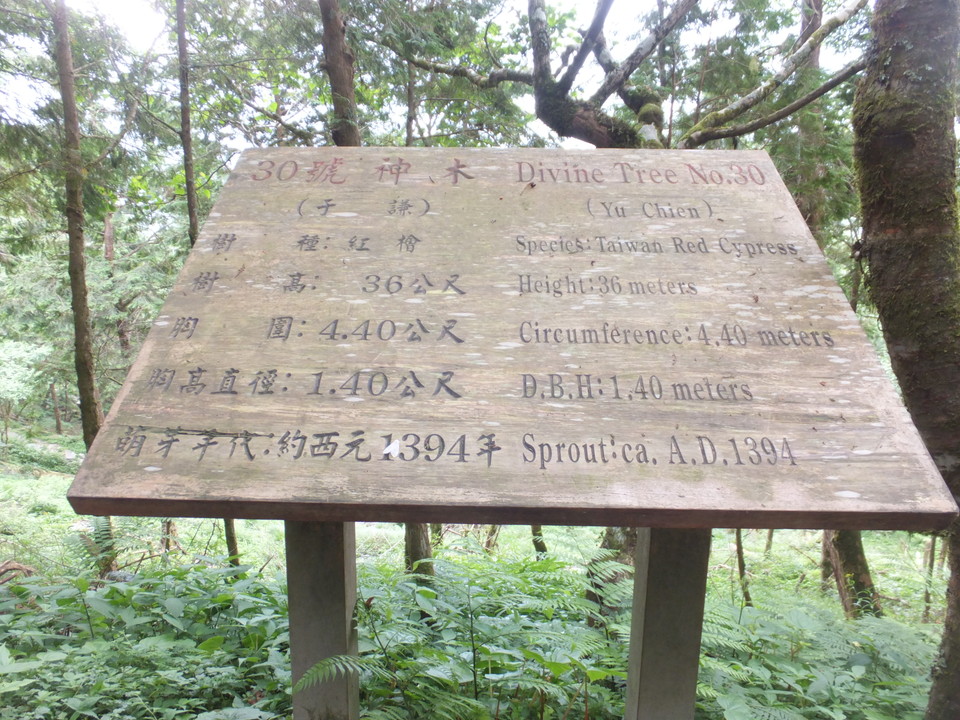 30號 神 木 Divine Tree No.30
(于 謙) (Yu Chien)
樹 種:紅 檜 Species:Taiwan Red Cypress
樹 高: 36公尺 Height:36 meters
胸 圍:4.40公尺 Circumference:4.40 meters
胸高直徑:1.40公尺 D.B.H:1.40 meters
萌芽年代:約西元1394年 Sprout:ca. A.D.1394